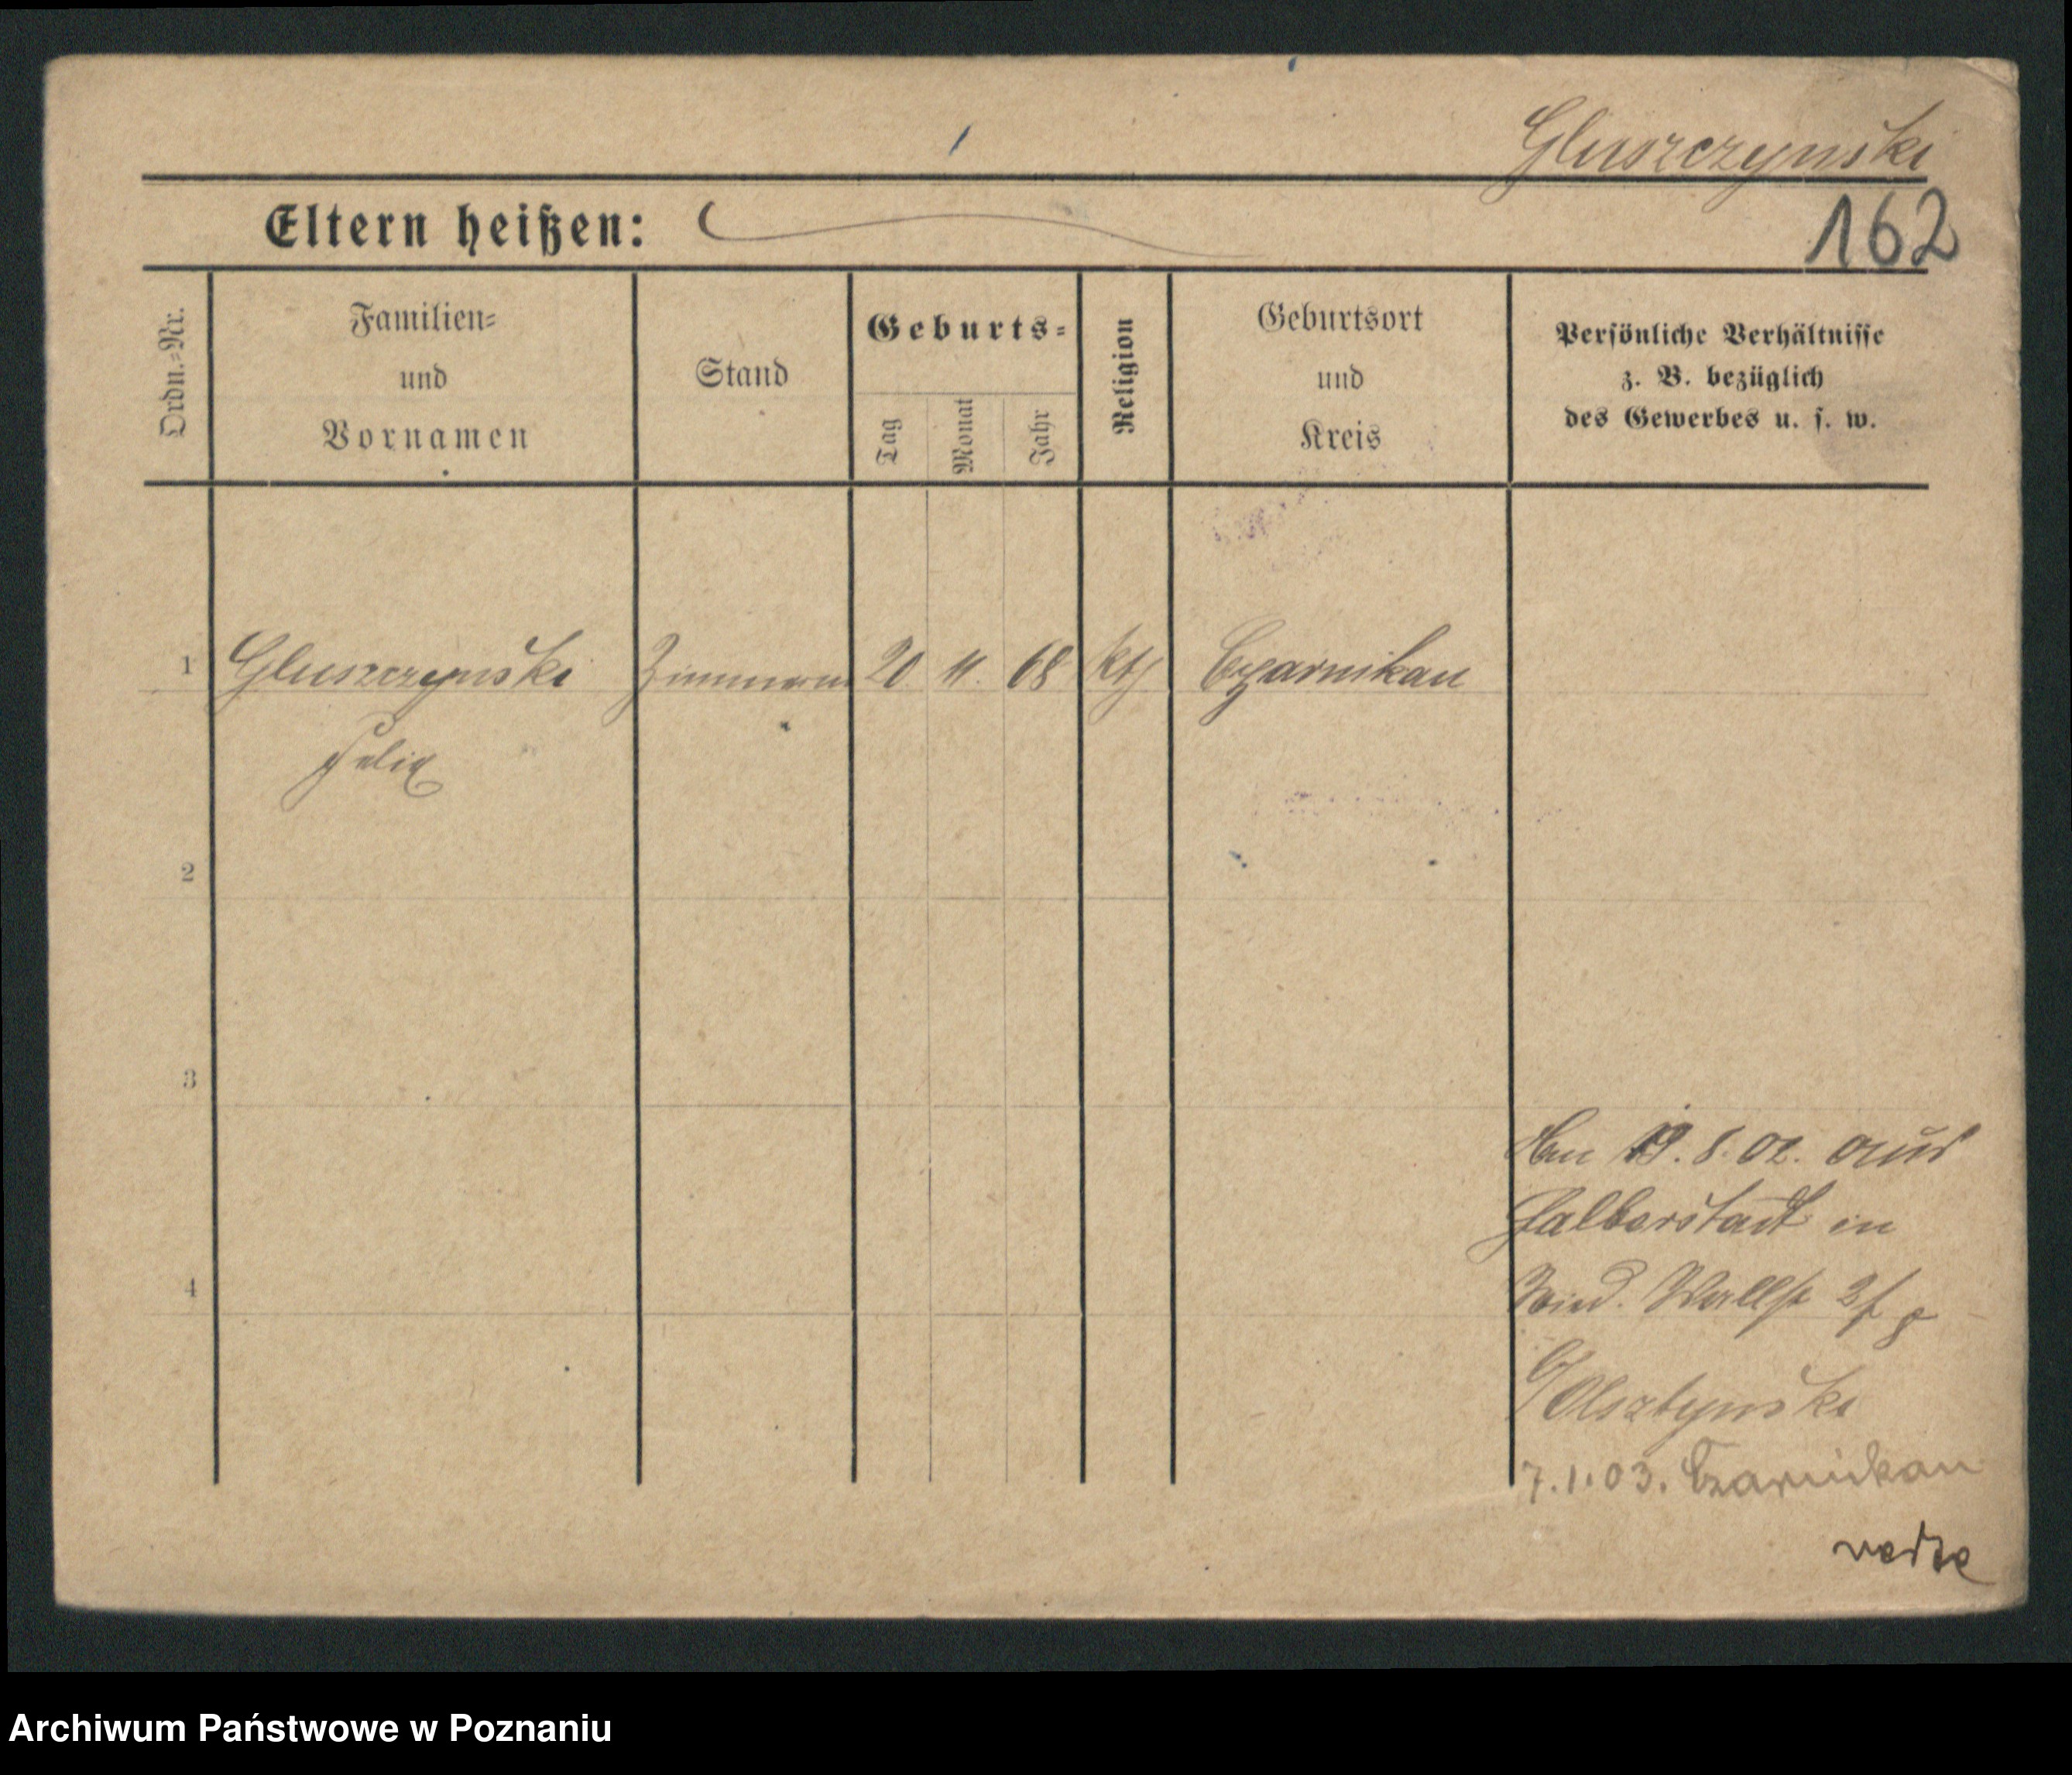 Gluszczynski
Eltern heißen:
162
Ordn.-Nr.
Familien-
und
Vornamen
Stand
Geburts-
Tag
Monat
Jahr
Religion
Geburtsort
und
Kreis
Persönliche Verhältnisse
z. B. bezüglich
des Gewerbes u. s. w.
1 Gluszczynski Zimmerm 20. 11. 68 kth Czarnikau
Felix
2
3
4
19. 8. 02. aus
Halberstadt in
Wallst
Olsztynski
7.1.03. Czarnikau
Archiwum Państwowe w Poznaniu